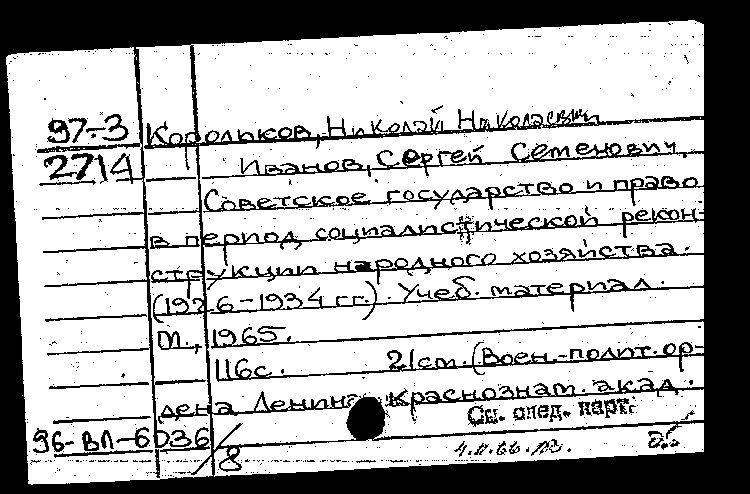 97-3 Корольков, Николай Николаевич
2714 Иванов, Сергей Семенович.
Советское государство и право
в период социалистической рекон-
струкции народного хозяйства.
(1926-1934 гг.). Учеб. материал.
М., 1965.
116с. 21см. (Воен.-полит. ор-
дена Ленина Краснознам. акад.
См. след. карт.
96-ВЛ-6036/8